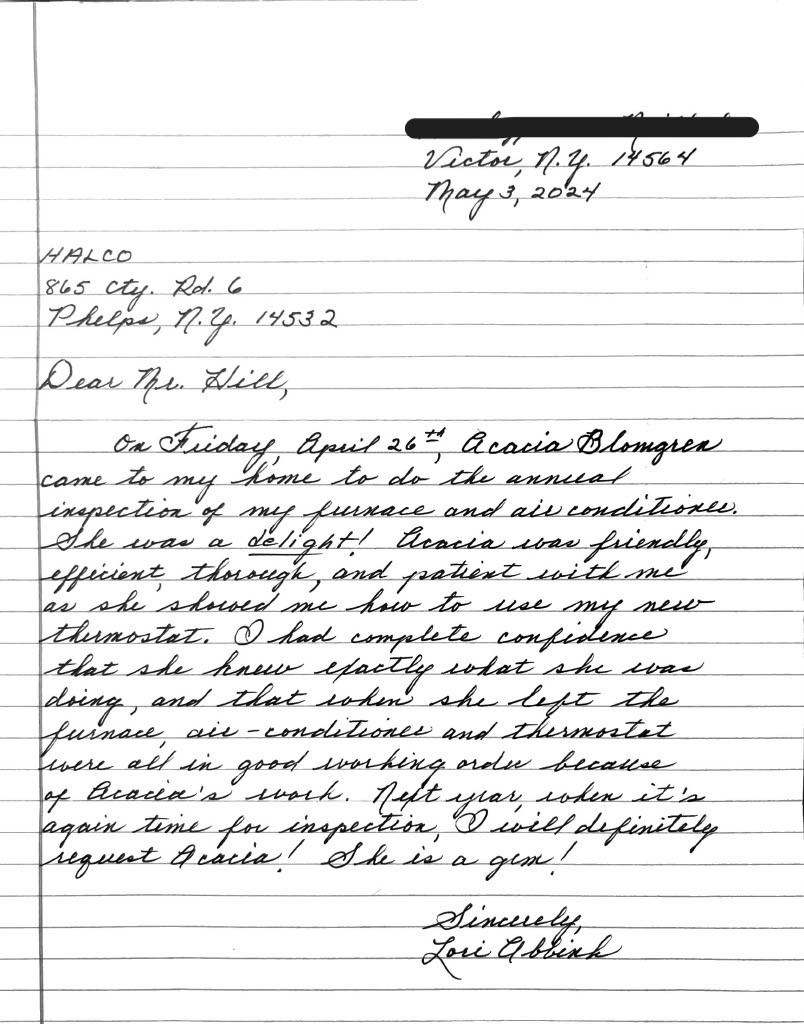 Victor, N.Y. 14564
May 3, 2024
HALCO
865 Cty. Rd. 6
Phelps, N.Y. 14532
Dear Mr. Hill,
On Friday, April 26th, Acacia Blomgren
came to my home to do the annual
inspection of my furnace and air conditioner.
She was a delight! Acacia was friendly,
efficient, thorough, and patient with me
as she showed me how to use my new
thermostat. I had complete confidence
that she knew exactly what she was
doing, and that when she left the
furnace, air-conditioner and thermostat
were all in good working order because
of Acacia's work. Next year, when it's
again time for inspection, I will definitely
request Acacia! She is a gem!
Sincerely,
Lori Abbink